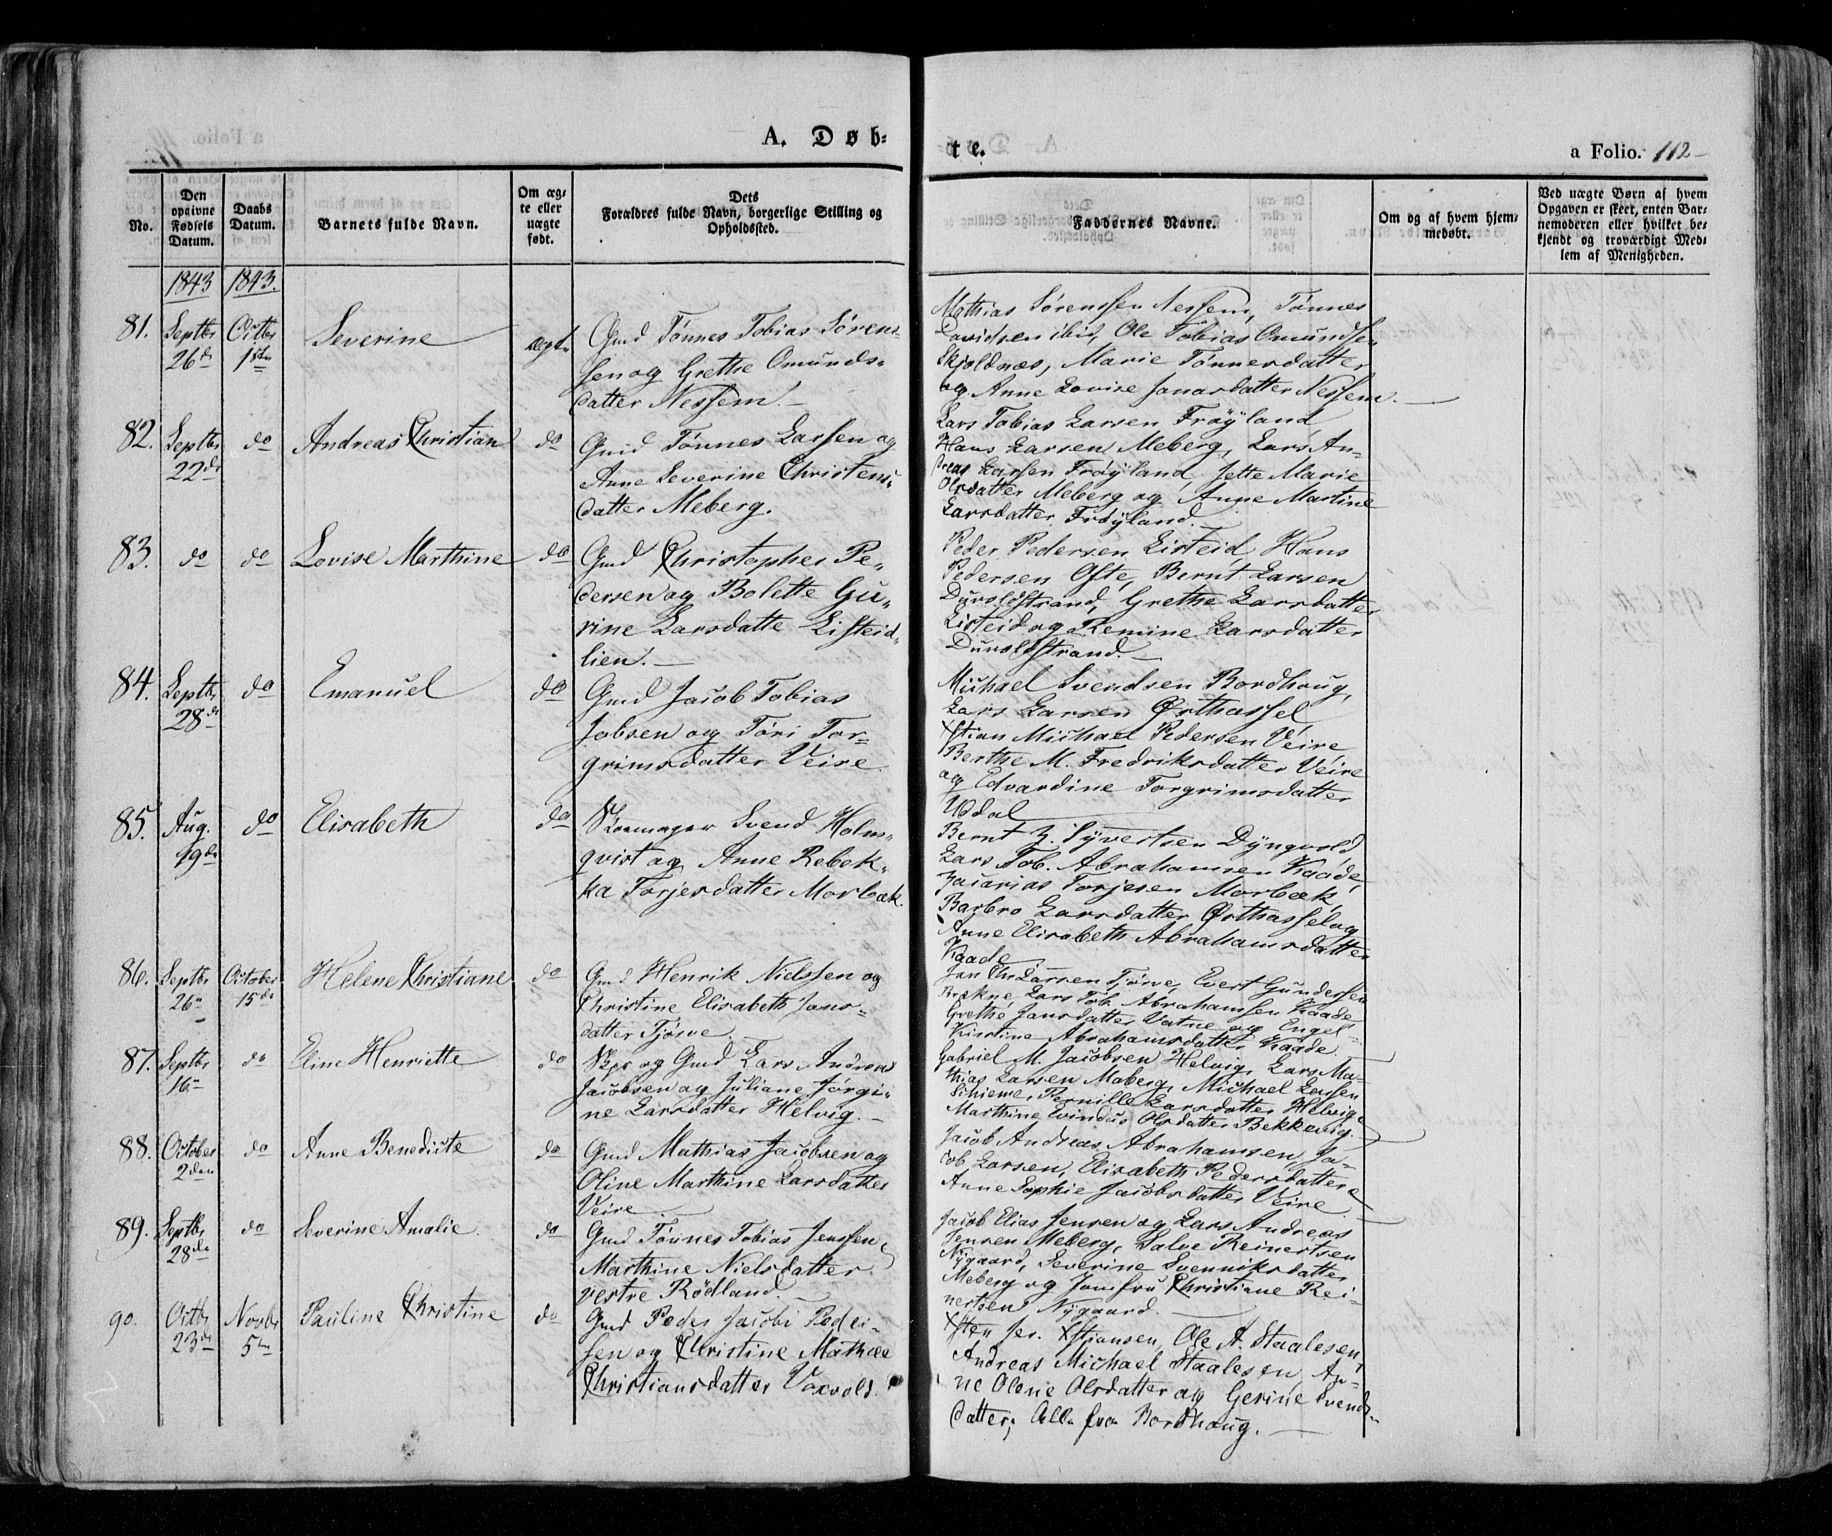 A. Døb-
te.
a Folio. 112
No.
Den opgivne Fødsels Datum.
Daabs Datum.
Barnets fulde Navn.
Om ægte eller uægte født.
Dets Forældres fulde Navn, borgerlige Stilling og Opholdssted.
Faddernes Navne.
Om og af hvem hjemmedøbt.
Ved uægte Børn af hvem Opgaven er skeet, enten Barnemoderen eller hvilket bekjendt og troværdigt Medlem af Menigheden.
1843 1843.
81. Septbr Octbr Severine ægte Gmd Tønnes Tobias Sørens-
26de 1ste sen og Grethe Omunds-
datter Nessem.
Mathias Sørenssen Nessem, Tønnes
Davidsen ibid, Ole Tobias Omundsen
Skjoldnæs, Marie Tønnesdatter
og Anne Lovise Jonasdatter Nessem.
82. Septbr do Andreas Christian do Gmd Tønnes Larssen og
22de Anne Severine Christens-
datter Meberg.
Lars Tobias Larsen Frøyland,
Hans Larsen Meberg, Lars An-
dreas Larsen Frøyland, Jette Marie
Olsdatter Meberg og Anne Martine
Larsdatter Frøyland.
83. do do Lovise Marthine do Gmd Christopher Pe-
dersen og Bolette Gu-
rine Larsdatte Listeid-
lien.
Peder Pedersen Listeid, Hans
Pedersen Ofte, Bernt Larsen
Duvoldstrand, Grethe Larsdatter
Listeid og Remine Larsdatter
Duvoldstrand.
84. Septbr do Emanuel do Gmd Jacob Tobias
28de Jobsen og Tori Tor-
grimsdatter Veire
Michael Svendsen Bordhoug,
Lars Larsen Østhassel
Xstian Michael Pedersen Veire
Berthe M. Fredriksdatter Veire
og Edvardine Torgrimsdatter
Udal
85. Aug. do Elisabeth do Skoemager Svend Holm-
19de qvist og Anne Rebek-
ka Torjesdatter Morbæk.
Bernt Z. Syvertsen Dyngvold
Lars Tob. Abrahamsen Kaade,
Zacarias Torjesen Morbæk,
Barbro Larsdatter Østhassel og
Anne Elisabeth Abrahamsdatter
Kaade
86. Septbr October Helene Christiane do Gmd Henrik Nielssen og
26 15de Christine Elisabeth Jans-
datter Tjørve
Jan Chr Larsen Tjørve, Evert Gundersen
Brækne, Lars Tob. Abrahamsen Kaade
Grethe Jansdatter Vatne og Engel
Kirstine Abrahamsdatter Kaade.
87. Septbr do Eline Henriette do Skpr og Gmd Lars Andreas
16 Jacobsen og Juliane Jørgi-
ne Larsdatter Helvig.
Gabriel M. Jacobsen Helvig, Lars Ma-
thias Larsen Maberg, Michael Larsen
Schieme, Pernille Larsdatter Helvig
Marthine Olsdatter Bekkevig.
88. October do Anne Benedicte do Gmd Mathias Jacobsen og
2den Oline Marthine Larsdatter
Veire
Jacob Andreas Abrahamsen, Ja-
cob Larsen, Elisabeth Pedersdatter
Anne Sophie Jacobsdatter Veire.
89. Septbr do Severine Amalie do Gmd Tønnes Tobias Jenssen,
28de Marthine Nielsdatter
vestre Rødland.
Jacob Elias Jensen og Lars Andreas
Jensen Meberg, Salve Reinertsen
Nygaard, Severine Svenniksdatter
Meberg og Jomfru Christiane Rei-
nertsen Nygaard.
90. Octbr Novbr Pauline Christine do Gmd Peder Jacobi Peder-
23de 5te sen og Christine Mathee
Christiansdatter Voxvold.
Xsten Jer. Xstjansen, Ole A. Staalesen
Andreas Michael Staalesen, An-
ne Olene Olsdatter og Gerine Svends-
datter, Alle fra Bordhoug.